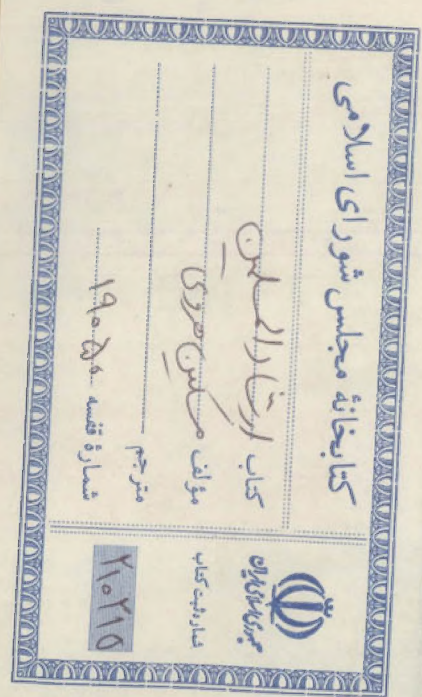 کتابخانهٔ مجلس شورای اسلامی
کتاب ارشاد المسلمین
مؤلف مسکین هروی
مترجم
شمارهٔ قفسه ۱۹۰۵۵
جمهوری اسلامی ایران
شماره ثبت کتاب
۲۱۰۲۱۵